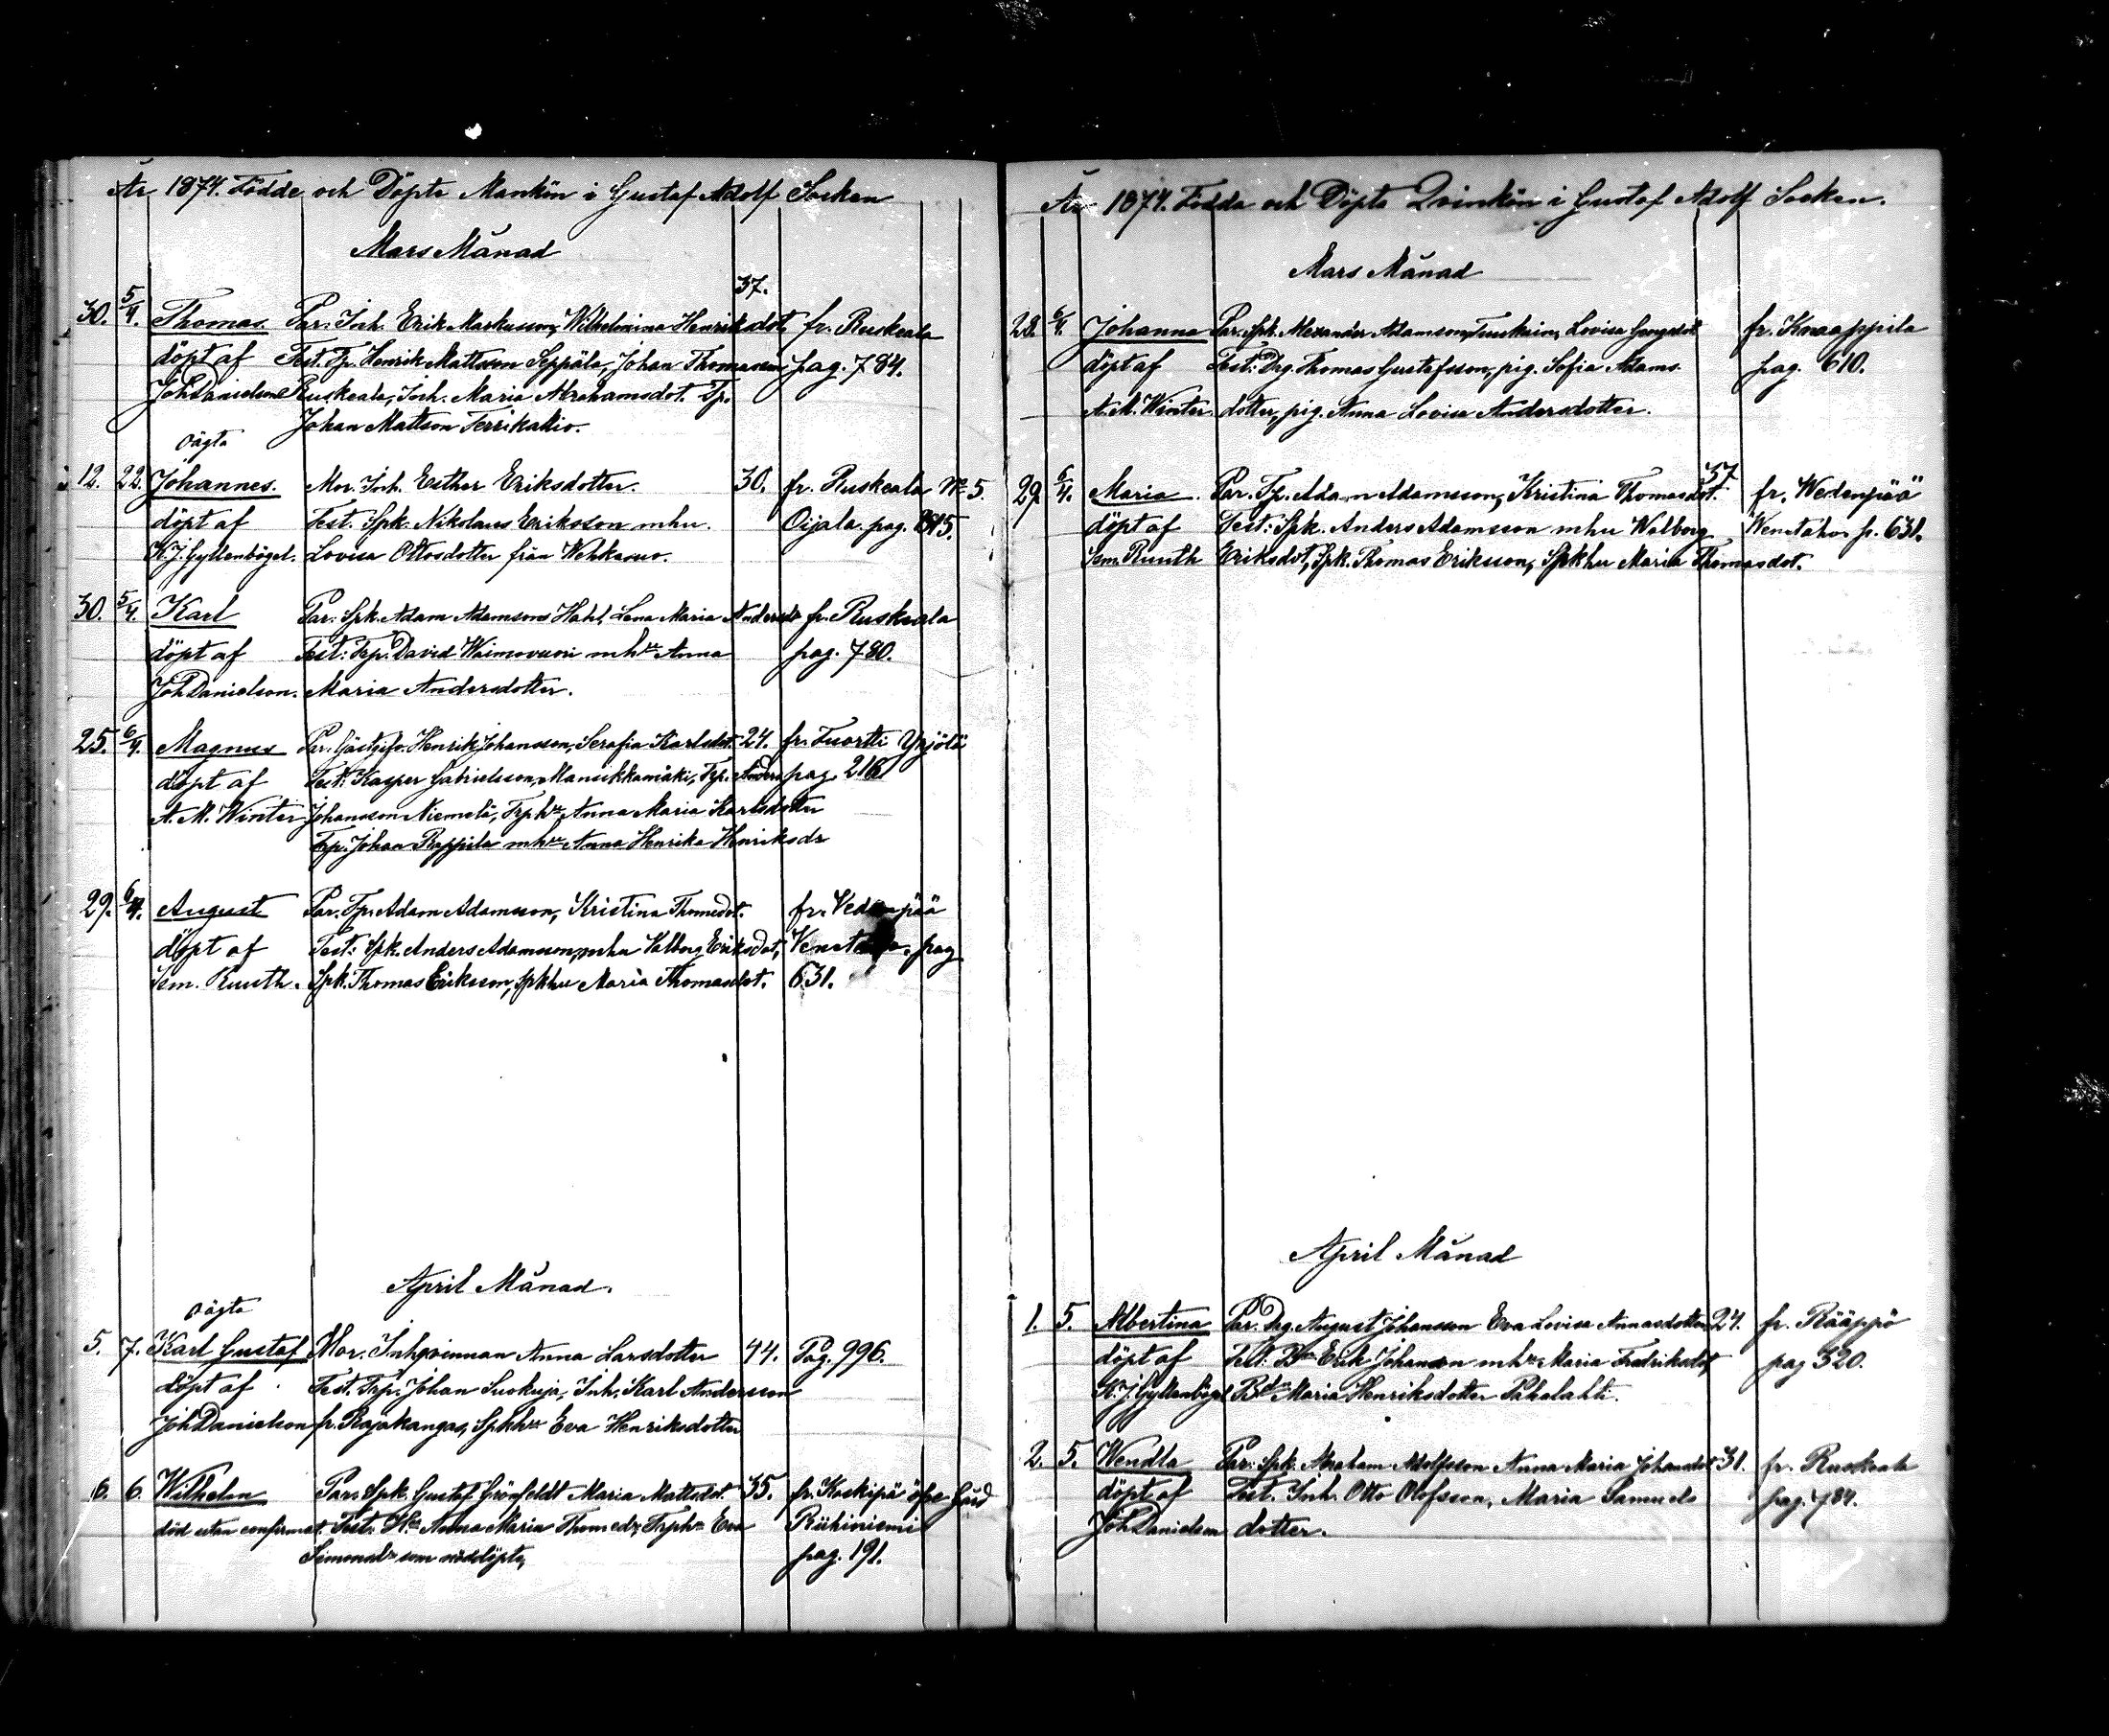 År 1874. Födde och Döpte Mankön i Gustaf Adolf Socken
Mars Månad
37.
30. 5/4. Thomas. Par. Inh. Erik Markusson, Wilhelmina Henriksdot, fr. Ruskeala
döpt af Test. Tp. Henrik Mattsson Seppälä, Johan Thomasson pag. 784.
Joh Danielson Ruskeala, Inh. Maria Abrahamsdot. Tp.
Johan Mattson Terrikallio.
oägta
12. 22. Johannes. Mor. Inh. Esther Eriksdotter. 30. fr. Ruskeala No 5.
döpt af Test. Spk. Nikolaus Eriksson mhu. Oijala. pag. 815.
K. J. Gyllenbögel. Lovisa Ottosdotter från Wehkasuo.
30. 5/4. Karl Par. Spk. Adam Adamsons Hahl, Lena Maria Andersdr fr. Ruskeala
döpt af Test: Trp. David Waimovuori mhu Anna pag. 780.
Joh Danielson. Maria Andersdotter.
25. 6/4. Magnus Par. Gästgifv. Henrik Johansson, Serafia Karlsdot. 24. fr. Yrjölä
döpt af Test: Kasper Gabrielsson, Mansikkamäki, Trp. Anders pag. 216
A. M. Winter Johansson Niemelä, Trphu Anna Maria Karlsdotter
Trp. Johan Rappila mhu Anna Henrika Henriksdr
29. 6/4. August Par. Tp. Adam Adamsson, Kristina Thomedot. fr. Vedenpää
döpt af Test: Spk. Anders Adamsson, mhu Valborg Eriksdot, pag
Sem. Ruuth. Spk. Thomas Eriksson, Spkhu Maria Thomasdot. 631.
April Månad.
oägta
5. 7. Karl Gustaf Mor. Inhqvinnan Anna Larsdotter 44. Pag. 996.
döpt af Test. Trp. Johan Suokuja, Inh. Karl Andersson
Joh Danielson fr. Rajakangas, Spkhu Eva Henriksdotter
6. 6. Wilhelm Par. Spk. Gustaf Grönfeldt Maria Mattsdot. 35. fr. Koskipä
död utan confirmat. Test: Anna Maria Thomedr, Trphu Eva Riihiniemi
Simonsdr som nöddöpte, pag. 191.
År 1874. Födda och Döpta Qvinkön i Gustaf Adolf Socken.
Mars Månad
28. 6/4. Johanna Par. Spk. Alexander Adamson, Lovisa fr. Knaappila
döpt af Test: Drg. Thomas Gustafsson, pig. Sofia Adams- pag. 610.
A. M. Winter. dotter, pig. Anna Lovisa Andersdotter.
37
29. 6/4. Maria. Par. Tp. Adam Adamsson, Kristina Thomasdot. fr. Wedenpää
döpt af Test: Spk. Anders Adamsson mhu Walborg Wenetaho p. 631.
Sem. Ruuth Eriksdot, Spk. Thomas Eriksson, Spkhu Maria Thomasdot.
April Månad
1. 5. Albertina Par. Drg. August Johansson Eva Lovisa Annasdotter 24. fr. Rääppö
döpt af Test. Erik Johanson mhu Maria Fredriksdot, pag 320.
K. J. Gyllenbögel Maria Henriksdotter Pahalahti.
2. 5. Wendla Par. Spk. Abraham Adolfsson Anna Maria Johansdot 31. fr. Ruskeala
döpt af Test. Inh. Otto Olofsson, Maria Samuels pag. 784.
Joh Danielson dotter.